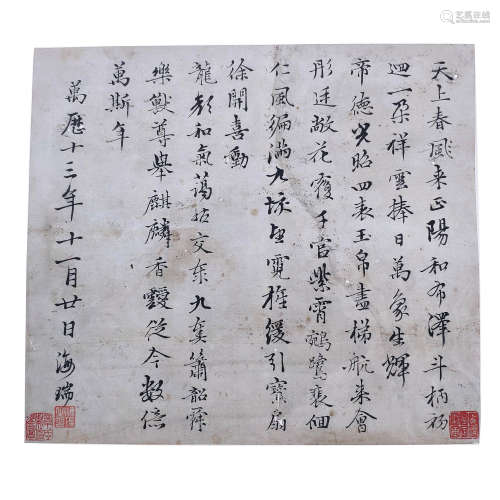 天上春風来正陽和布澤斗柄初
迴一朵祥雲捧日萬象生輝
帝徳光昭四表玉帛盡梯航来會
彤廷敞花覆千官紫霄鵷鷺裵佪
仁風徧滿九垓望霓旌緩引寳扇
徐開喜動
龍顔和氣藹然交泰九奏簫韶舜
樂獸尊舉麒麟香靉從今数億
萬斯年
萬厯十三年十一月廿日海瑞